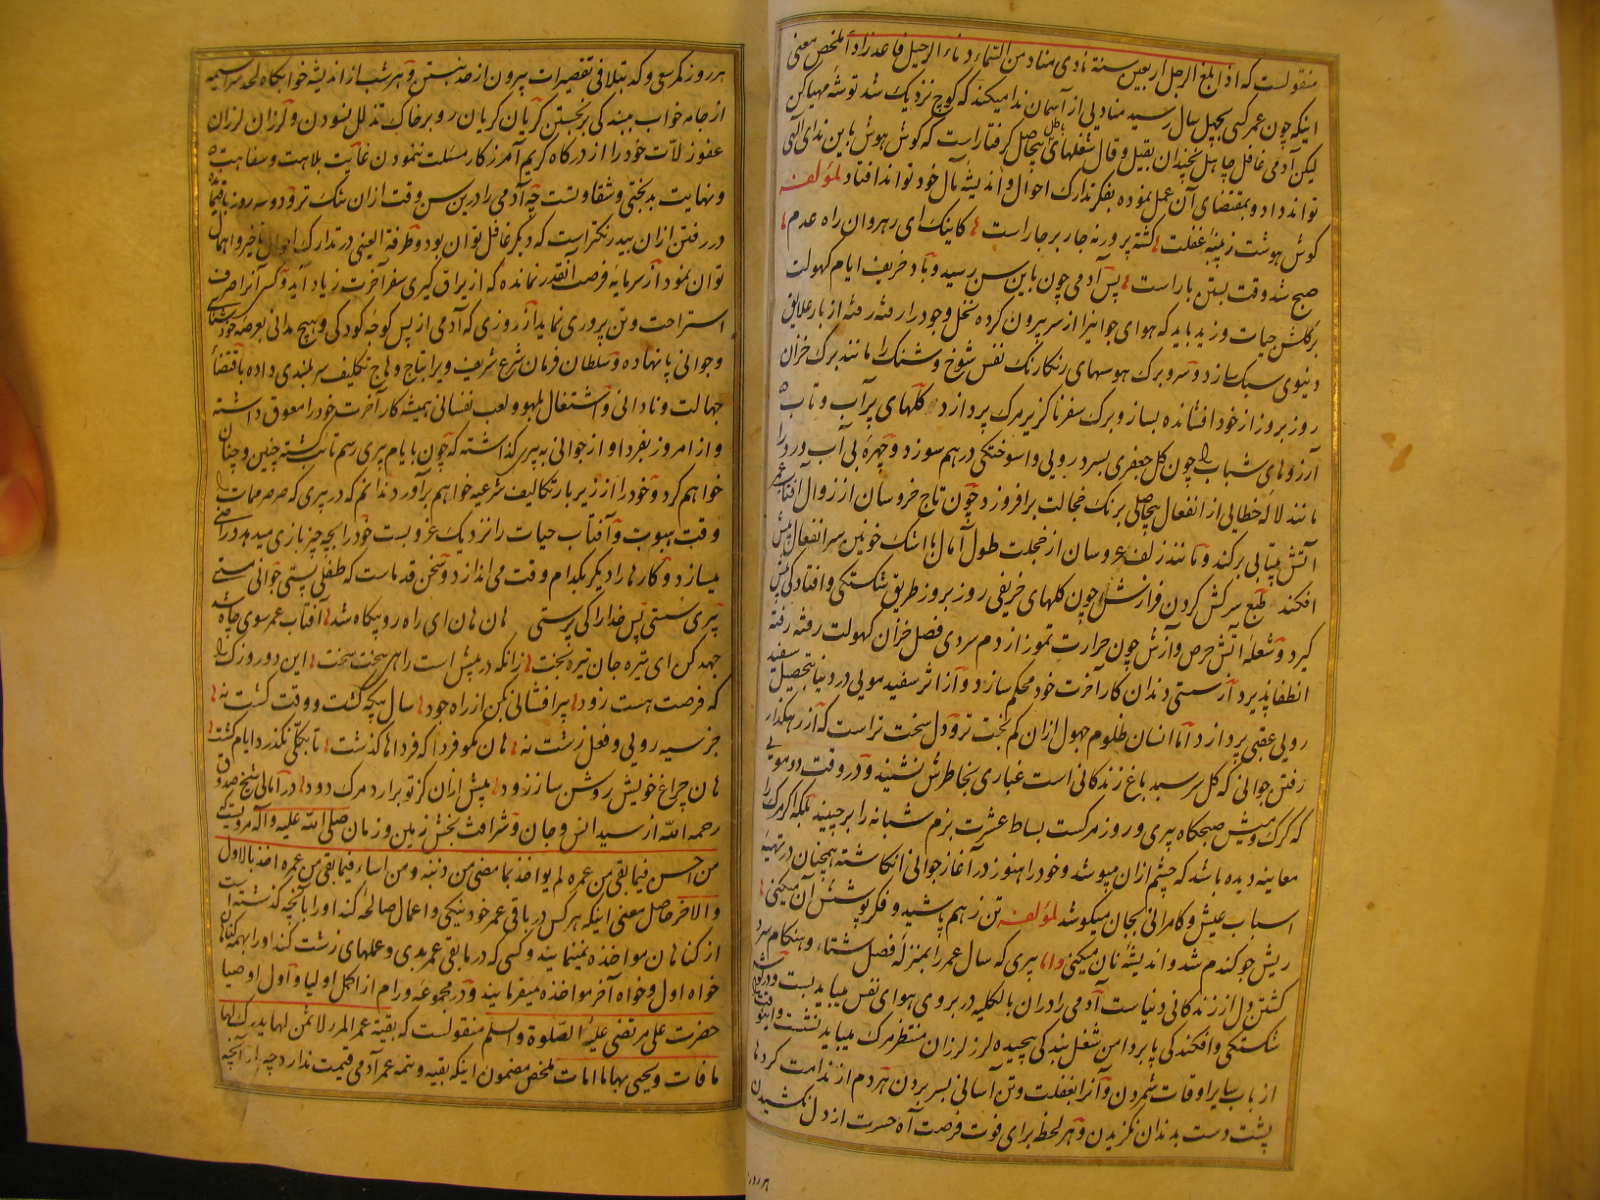 منقولست که اذا بلغ الرجل اربعین سنة نادی مناد من السماء دناء الرحیل فاعد زادا ملخص معنی
اینکه چون عمر کسی بچهل سال رسید منادیی از آسمان ندا میکند که کوچ نزدیک شد توشه مهیا کن
لیکن آدمی غافل جاهل نچندان بقیل و قال شغلهای بیحاصل گرفتار است که گوش هوش باین ندای الهی
تواند داد و بمقتضای آن عمل نموده بفکر تدارک احوال و اندیشه مآل خود تواند افتاد لمؤلفه
گوش هوشت ز پنبه غفلت کشته پر ورنه جار بر جار است کاینک ای رهروان راه عدم
صبح شد وقت بستن بار است پس آدمی چون باین سن رسید و باد خریف ایام کهولت
بر گلشن حیات وزید باید که هوای جوانیرا از سر بیرون کرده نخل وجود را رفته رفته از بار علایق
دنیوی سبک سازد و سر و برک هوسهای رنکارنک نفس شوخ و شنک را مانند برک خزان
روز بروز از خود افشانده بساز و برک سفر ناگزیر مرک پردازد گلهای پر آب و تاب
آرزوهای شباب را چون گل جعفری بسرد رویی و اسوختگی در هم سوزد و چهره بی آب ورد را
مانند لاله خطایی از انفعال بیحاصلی برنک خجالت برافروزد چون تاج خروسان از زوال آفتاب عمر
آتش بیتابی بر کند و مانند زلف عروسان از خجلت طول آمال با اشک خونین سر انفعال پیش
افکند طبع سرکش گردن فرازش چون گلهای خریفی روز بروز طریق شکستگی و افتادگی پیش
گیرد و شعله آتش حرص و آزش چون حرارت تموز از دم سردی فصل خزان کهولت رفته رفته
انطفا پذیرد از سستی دندان کار آخرت خود محکم سازد و از اثر سفید مویی در دنیا بتحصیل سفید
رویی عقبی پردازد اما انسان ظلوم جهول ازان کم بخت تر و دل سخت تر است که از رهگذار
رفتن جوانی که گل سرسبد باغ زندگانی است غباری بخاطرش نشیند و در وقت دو مویی
که گرک و میش صبحگاه پیری و روز مرگست بساط عشرت بزم شبانه را برچیند بلکه اگر مرگ را
معاینه دیده باشد که چشم ازان میپوشد و خود را هنوز در آغاز جوانی انگاشته همچنان در تهیه
اسباب عیش و کامرانی بجان میکوشد لمؤلفه تن ز هم پاشید و فکر پوشش آن میکنی
ریش جو گندم شد و اندیشه نان میکنی و اما پیری که سال عمر را بمنزله فصل شتاء و هنگام سرد
گشتن دل از زندگانی دنیاست آدمی را دران بالکلیه در بروی هوای نفس میباید بست و در گوشه
شکستگی و افکندگی پا بر دامن شغل بندگی پیچیده لرز لرزان منتظر مرک میباید نشست
از باب سایر اوقات شمردن و آنرا بغفلت و تن آسانی بسر بردن هر دم از ندامت کردها
پشت دست بدندان گزیدن و هر لحظه برای فوت فرصت آه حسرت از دل کشیدن
هر روز
هر روز کمر سعی و کد بتلافی تقصیرات بیرون از حد بستن و هر شب از اندیشه خوابگاه لحد سراسیمه
از جامه خواب بندگی برنجستن گریان گریان رو بر خاک تذلل نسودن و لرزان لرزان
عفو زلات خود را از درگاه کریم آمرزگار مسئلت ننمودن غایت بلاهت و سفاهت
و نهایت بدبختی و شقاوتست چه آدمی را درین سن وقت ازان تنک تر و دو سه روز باقیمانده
در رفتن ازان بیدرنگتر است که دیگر غافل توان بود و طرفة العینی در تدارک احوال تاخیر و اهمال
توان نمود از سرمایه فرصت آنقدر نمانده که از یراق گیری سفر آخرت زیاد آید و کس آنرا صرف
استراحت و تن پروری نماید از روزی که آدمی از پس کوچه کودکی و هیچ مدانی بعرصه خودشناسی
و جوانی پا نهاده و سلطان فرمان شرع شریف ویرا بتاج وهاج تکلیف سربلندی داده باقتضاء
جهالت و نادانی و اشتغال بلهو و لعب نفسانی همیشه کار آخرت خود را معوق داشته
و از امروز بفردا و از جوانی به پیری گذاشته که چون بایام پیری رسم تائب گشته چنین و چنان
خواهم کرد و خود را از زیر بار تکالیف شرعیه خواهم برآورد ندانم که در پیری که صرصر ممات را
وقت هبوبست و آفتاب حیات را نزدیک غروبست خود را بچه چیز بازی میدهد و راضی
میسازد و کارها را دیگر بکدام وقت می اندازد و سخن قدماست که طفلی پستی جوانی مستی
پیری سستی پس خدا را کی پرستی هان هان ای راه رو بیگاه شد آفتاب عمر سوی چاه شد
جهد کن ای تیره جان تیره بخت زانکه در پیش است راهی سخت سخت این دو روزک را
که فرصت هست زود پیر افشانی بکن از راه جود سال بیگه گشت و وقت کشت نه
جز سیه رویی و فعل زشت نه هان مگو فردا که فرداها گذشت تا بکلی نگذرد ایام کشت
هان چراغ خویش روشن ساز زود پیش ازان کز تو برارد مرک دود در امالی شیخ صدوق
رحمه الله از سید انس و جان و شرافت بخش زمین و زمان صلی الله علیه و آله مرویست که
من احسن فیما بقی من عمره لم یواخذ بما مضی من ذنبه و من اساء فیما بقی من عمره اخذ بالاول
و الآخر حاصل معنی اینکه هر کس در باقی عمر خود نیکی و اعمال صالحه کند او را بآنچه گذشته است
از گناهان مواخذه نمینمایند و کسی که در مابقی عمر بدی و عملهای زشت کند او را بهمه گناهان
خواه اول و خواه آخر مواخذه میفرمایند و در مجموعه ورام از اکمل اولیا و اول اوصیا
حضرت علی مرتضی علیه الصلوة و السلم منقولست که بقیة عمر المرء لا ثمن لها یدرک بها
ما فات و یحیی بها ما امات ملخص مضمون اینکه بقیه و تتمه عمر آدمی قیمت ندارد چه بآن آنچه